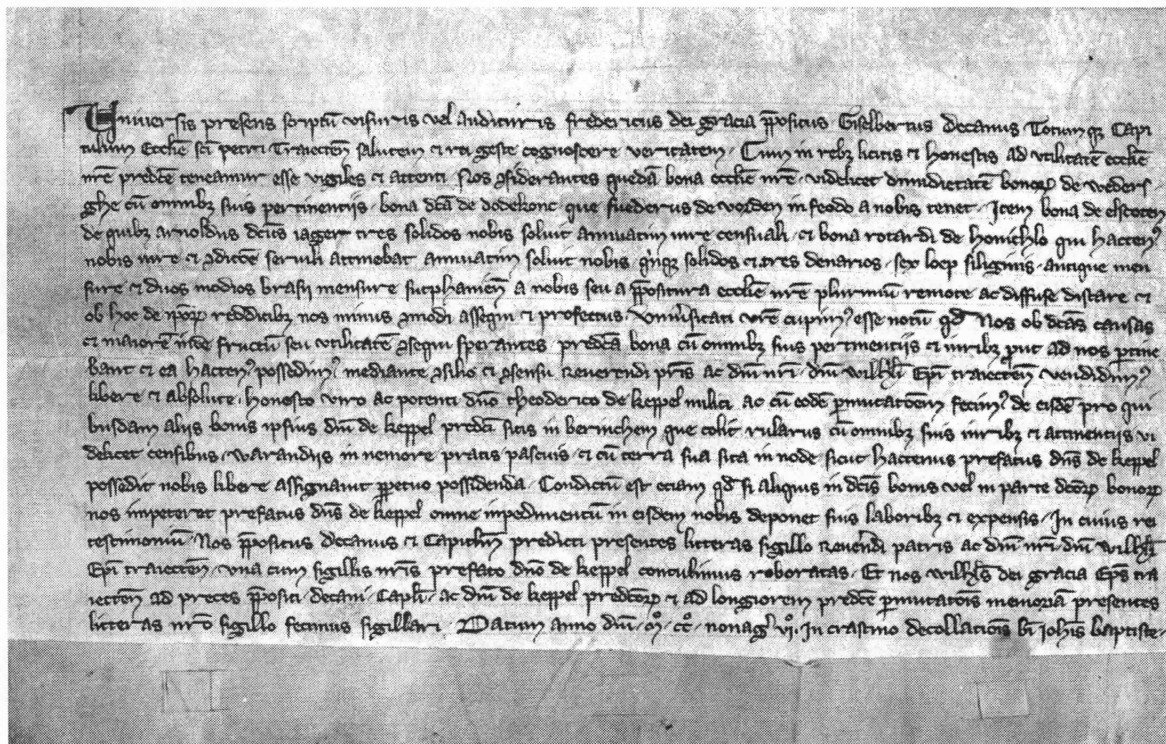 Universis presens scriptū visuris vel audituris fredericus dei gracia p̄positus Giselbertus decanus Totumq; Capi
tulum Ecclīe sci petri Traiecten̄ salutem ⁊ rei geste cognoscere veritatem. Cum in rebꝫ licitis ⁊ honestis ad utilitatē ecclīe
nr̄e predc̄e teneamur esse vigiles ⁊ attenti. Nos ꝯsiderantes quedā bona ecclīe nr̄e. videlicet dimidietatē bonoꝝ de weders
ghe cū omnibꝫ suis pertinentijs. bona dc̄a de dodekonc que fuederus de vorden in feodo a nobis tenet. Item bona de elscoten
de quibꝫ arnoldus dc̄us iager tres solidos nobis soluit annuatim iure censuali. ⁊ bona rotardi de honichlo qui hacten⁹
nobis iure ⁊ ꝯdicōe seruili attinebat annuatim soluit nobis. qͥnqꝫ solidos ⁊ tres denarios. sex loep siliginis. antique men
sure ⁊ duos modios brasij mensure sutphanien̄ a nobis seu a p̄positura ecclīe nr̄e plurimū remote ac diffuse distare ⁊
ob hoc de ip̄oꝝ redditibꝫ nos minus ꝯmodi assequi ⁊ profectus. vniu̓sitati vr̄e cupim⁹ esse notū qd̄ Nos ob dc̄as causas
⁊ maiorē inde fructū seu vtilitatē ꝯsequi sperantes. predc̄a bona cū omnibꝫ suis pertinentijs ⁊ iuribꝫ put ad nos ꝑtine
bant ⁊ ea hacten⁹ possedim⁹ mediante ꝯsilio ⁊ ꝯsensu Reuerendi pr̄is ac dn̄i nr̄i. dn̄i wilhl̄i Ep̄i traiecten̄ vendidim⁹
libere ⁊ absolute. honesto viro ac potenti dn̄o theoderico de keppel militi ac cū eodē ꝑmutacōem fecim⁹ de eisdē pro qui
busdam alijs bonis ipsius dn̄i de keppel predc̄i sitis in berinchem que colit rularus cū omnibꝫ suis iuribꝫ ⁊ attinentijs vi
delicet censibus. warandijs in nemore. pratis pascuis. ⁊ cū terra sua sita in node sicut hactenus prefatus dn̄s de keppel
possedit nobis libere assignauit ꝑpetuo possidenda. Condictū est eciam qd̄ si aliquis in dc̄is bonis vel in parte dc̄oꝝ bonoꝝ
nos impeteret prefatus dn̄s de keppel omne inpedimentū in eisdem nobis deponet suis laboribꝫ ⁊ expensis. In cuius rei
testimoniū. Nos p̄positus decanus ⁊ Capitl̄m predicti presentes litteras sigillo Reuen̄di patris ac dn̄i nr̄i. dn̄i wilhl̄i
Ep̄i traiecten̄. vna cum sigillis nr̄is prefato dn̄o de keppel contulimus roboratas. Et nos wilhl̄s dei gracia Ep̄s tra
iecten̄ ad preces p̄positi. decani. Capl̄i. ac dn̄i de keppel predc̄oꝝ ⁊ ad longiorem predc̄e ꝑmutacōis memoriā presentes
litteras nr̄o sigillo fecimus sigillari. Datum anno dn̄i. mͦ. ccͦ. nonagͦ. vjͦ. In crastino decollacōis bi̅ ioh̄is baptiste.